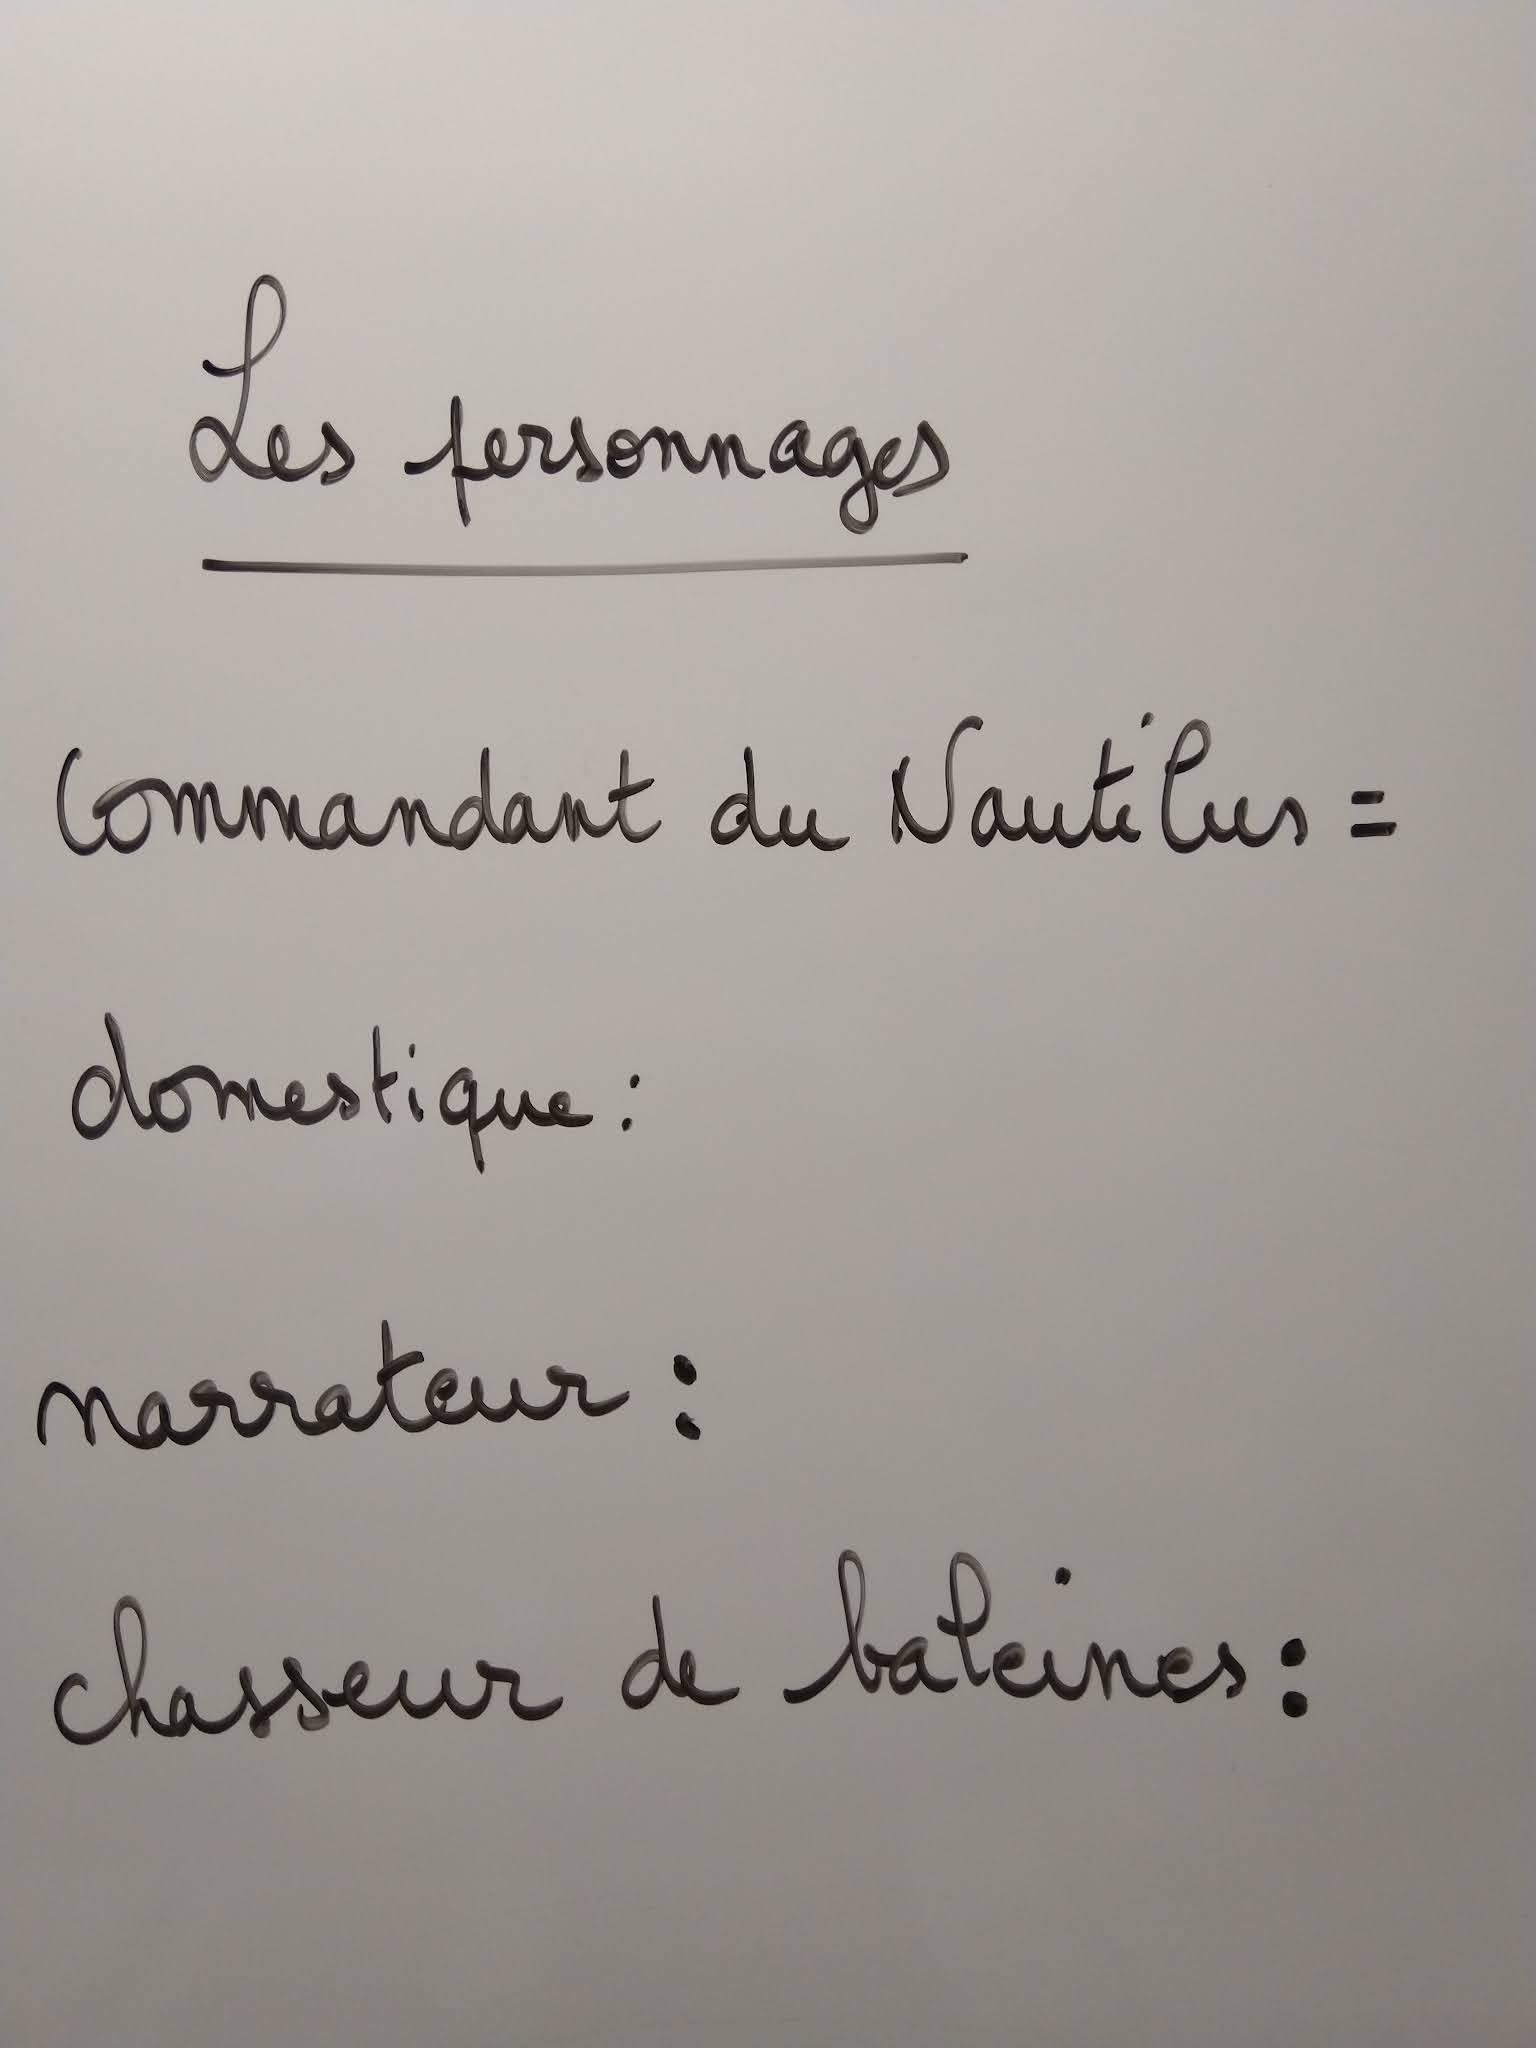 Les personnages
Commandant du Nautilus =
domestique :
narrateur :
chasseur de baleines :